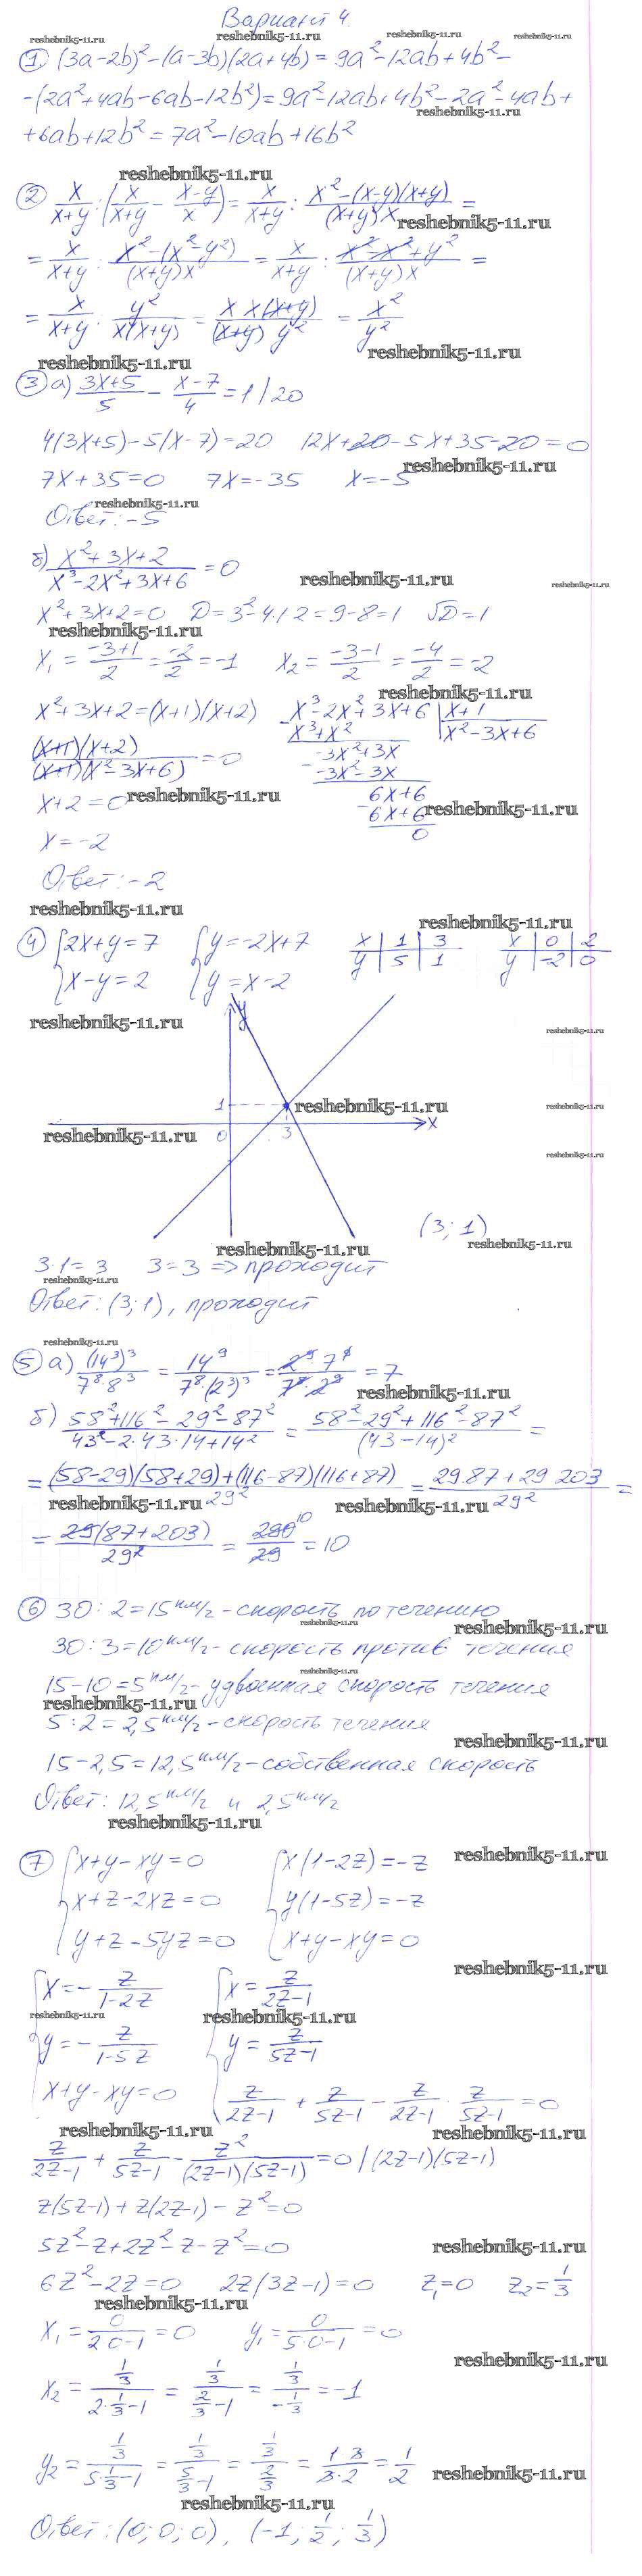 Вариант 4.
reshebnik5-11.ru reshebnik5-11.ru reshebnik5-11.ru reshebnik5-11.ru
① (3a-2b)² - (a-3b)(2a+4b) = 9a²-12ab+4b² -
-(2a²+4ab-6ab-12b²) = 9a²-12ab+4b²-2a²-4ab+
reshebnik5-11.ru
+6ab+12b² = 7a²-10ab+16b²
reshebnik5-11.ru
② x/(x+y) : (x/(x+y) - (x-y)/x) = x/(x+y) : (x²-(x-y)(x+y))/((x+y)x) =
reshebnik5-11.ru
= x/(x+y) : (x²-(x²-y²))/((x+y)x) = x/(x+y) : (x²-x²+y²)/((x+y)x) =
= x/(x+y) : y²/(x(x+y)) = (x x(x+y))/((x+y) y²) = x²/y²
reshebnik5-11.ru reshebnik5-11.ru
③ а) (3x+5)/5 - (x-7)/4 = 1 / 20
4(3x+5)-5(x-7)=20 12x+20-5x+35-20=0
reshebnik5-11.ru
7x+35=0 7x=-35 x=-5
reshebnik5-11.ru
Ответ: -5
б) (x²+3x+2)/(x³-2x²+3x+6) = 0
reshebnik5-11.ru reshebnik5-11.ru
x²+3x+2=0 D=3²-4·1·2=9-8=1 √D=1
reshebnik5-11.ru
x₁ = (-3+1)/2 = -2/2 = -1 x₂ = (-3-1)/2 = -4/2 = -2
reshebnik5-11.ru
x²+3x+2=(x+1)(x+2) x³-2x²+3x+6 | x+1
x³+x² x²-3x+6
((x+1)(x+2))/((x+1)(x²-3x+6)) = 0 -3x²+3x
-3x²-3x
x+2=0 reshebnik5-11.ru 6x+6
6x+6 reshebnik5-11.ru
0
x=-2
Ответ: -2
reshebnik5-11.ru reshebnik5-11.ru
④ {2x+y=7 {y=-2x+7 x | 1 | 3 x | 0 | 2
{x-y=2 {y=x-2 y | 5 | 1 y | -2 | 0
reshebnik5-11.ru reshebnik5-11.ru
y
1 reshebnik5-11.ru reshebnik5-11.ru
x
reshebnik5-11.ru 0 3
reshebnik5-11.ru
(3; 1)
reshebnik5-11.ru reshebnik5-11.ru
3·1=3 3=3 => проходит
reshebnik5-11.ru
Ответ: (3; 1), проходит
reshebnik5-11.ru
⑤ а) (14³)³/(7⁸·8³) = 14⁹/(7⁸·(2³)³) = (2⁹·7⁹)/(7⁸·2⁹) = 7
reshebnik5-11.ru
б) (58²+116²-29²-87²)/(43²-2·43·14+14²) = (58²-29²+116²-87²)/(43-14)² =
= ((58-29)(58+29)+(116-87)(116+87))/29² = (29·87+29·203)/29² =
reshebnik5-11.ru reshebnik5-11.ru
= (29(87+203))/29² = 290/29 = 10
10
⑥ 30:2=15 км/ч - скорость по течению
reshebnik5-11.ru reshebnik5-11.ru
30:3=10 км/ч - скорость против течения
reshebnik5-11.ru
15-10=5 км/ч - удвоенная скорость течения
reshebnik5-11.ru
5:2=2,5 км/ч - скорость течения
reshebnik5-11.ru
15-2,5=12,5 км/ч - собственная скорость
Ответ: 12,5 км/ч и 2,5 км/ч
reshebnik5-11.ru
⑦ {x+y-xy=0 {x(1-2z)=-z reshebnik5-11.ru
{x+z-2xz=0 {y(1-5z)=-z
{y+z-5yz=0 {x+y-xy=0
reshebnik5-11.ru
{x=-z/(1-2z) {x=z/(2z-1)
reshebnik5-11.ru reshebnik5-11.ru
{y=-z/(1-5z) {y=z/(5z-1)
{x+y-xy=0 {z/(2z-1) + z/(5z-1) - z/(2z-1) · z/(5z-1) = 0
reshebnik5-11.ru reshebnik5-11.ru
z/(2z-1) + z/(5z-1) - z²/((2z-1)(5z-1)) = 0 / (2z-1)(5z-1)
z(5z-1)+z(2z-1)-z²=0
5z²-z+2z²-z-z²=0 reshebnik5-11.ru
6z²-2z=0 2z(3z-1)=0 z₁=0 z₂=1/3
reshebnik5-11.ru
x₁ = 0/(2·0-1) = 0 y₁ = 0/(5·0-1) = 0
reshebnik5-11.ru
x₂ = (1/3)/(2·1/3-1) = (1/3)/(2/3-1) = (1/3)/(-1/3) = -1
y₂ = (1/3)/(5·1/3-1) = (1/3)/(5/3-1) = (1/3)/(2/3) = (1·3)/(3·2) = 1/2
reshebnik5-11.ru
reshebnik5-11.ru
Ответ: (0; 0; 0), (-1; 1/2; 1/3)